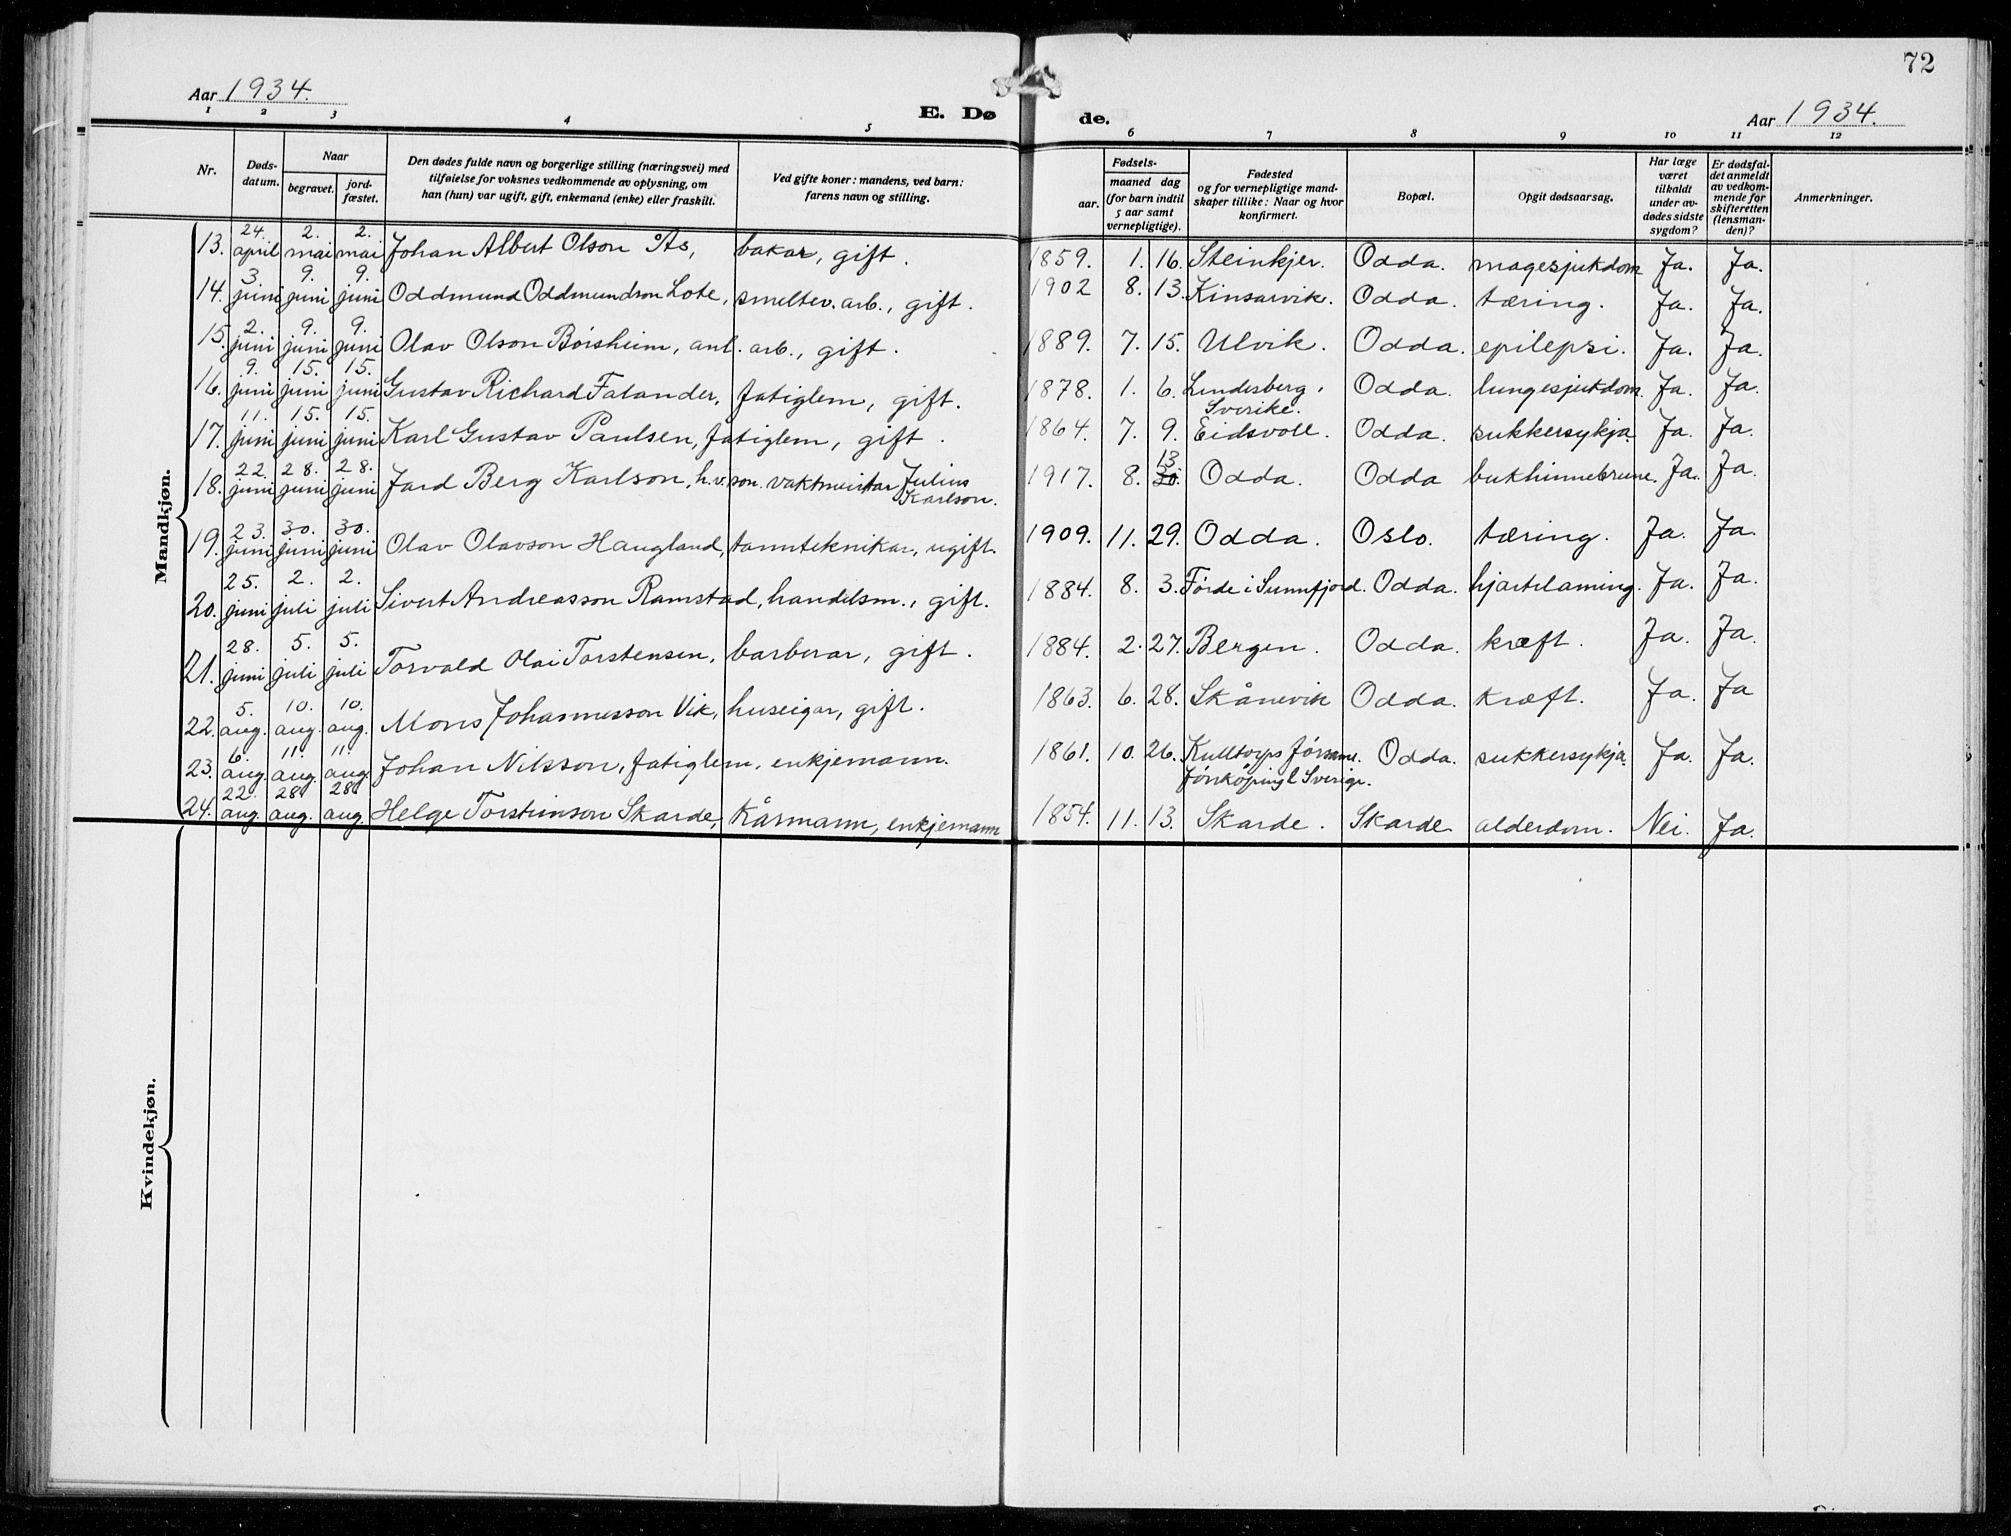 72
Aar 1934.
E. Dø
de.
Aar 1934.
1 2 3 4 5 6 7 8 9 10 11 12
Nr.
Døds-
datum.
Naar
begravet.
jord-
fæstet.
Den dødes fulde navn og borgerlige stilling (næringsvei) med
tilføielse for voksnes vedkommende av oplysning, om
han (hun) var ugift, gift, enkemand (enke) eller fraskilt.
Ved gifte koner: mandens, ved barn:
farens navn og stilling.
Fødsels-
aar.
maaned dag
(for barn indtil
5 aar samt
vernepligtige).
Fødested
og for vernepligtige mand-
skaper tillike: Naar og hvor
konfirmert.
Bopæl.
Opgit dødsaarsag.
Har læge
været
tilkaldt
under av-
dødes sidste
sygdom?
Er dødsfal-
det anmeldt
av vedkom-
mende for
skifteretten
(lensman-
den)?
Anmerkninger.
Mandkjøn.
13. 24. april 2. mai 2. mai Johan Albert Olson Ås, bakar, gift. 1859. 1. 16. Steinkjer. Odda. magesjukdom Ja. Ja.
14. 3 juni 9. juni 9. juni Oddmund Oddmundson Lote, smeltev. arb., gift. 1902 8. 13. Kinsarvik. Odda. tæring. Ja. Ja.
15. 2. juni 9. juni 9. juni Olav Olson Børsheim, anl. arb., gift. 1889. 7. 15. Ulvik. Odda. epilepsi. Ja. Ja.
16. 9. juni 15. juni 15. juni Gustav Richard Falander, fatiglem, gift. 1878. 1. 6. Lindesberg, Odda. lungesjukdom. Ja. Ja.
Sverike.
17. 11. juni 15. juni 15. juni Karl Gustav Paulsen, fatiglem, gift. 1864. 7. 9. Eidsvoll. Odda. sukkersykja Ja. Ja.
18. 22. juni 28. juni 28. juni Jard Berg Karlson, h.v. son. vaktmeistar Julius 1917. 8. 13 30. Odda. Odda bukhinnebrune. Ja. Ja.
Karlson.
19. 23. juni 30. juni 30. juni Olav Olavson Haugland, tannteknikar, ugift. 1909. 11. 29. Odda. Oslo. tæring. Ja. Ja.
20. 25. juni 2. juli 2. juli Sivert Andreasson Ramstad, handelsm., gift. 1884. 8. 3. Førde i Sunnfjord. Odda. hjartelaming. Ja. Ja.
21. 28. juni 5. juli 5. juli Torvald Olai Torstensen, barberar, gift. 1884. 2. 27. Bergen. Odda. kræft. Ja. Ja.
22. 5. aug. 10. aug. 10. aug. Mons Johannesson Vik, huseigar, gift. 1863. 6. 28. Skånevik Odda. kræft. Ja. Ja
23. 6. aug. 11. aug. 11. aug. Johan Nilsson, fatiglem, enkjemann. 1861. 10. 26. Kulltorps førsaml. Odda. sukkersykja. Ja. Ja.
Jönköping l Sverige.
24. 22. aug. 28 aug. 28 aug. Helge Torsteinson Skarde, Kårmann, enkjemann 1854. 11. 13. Skarde. Skarde alderdom. Nei. Ja.
Kvindekjøn.